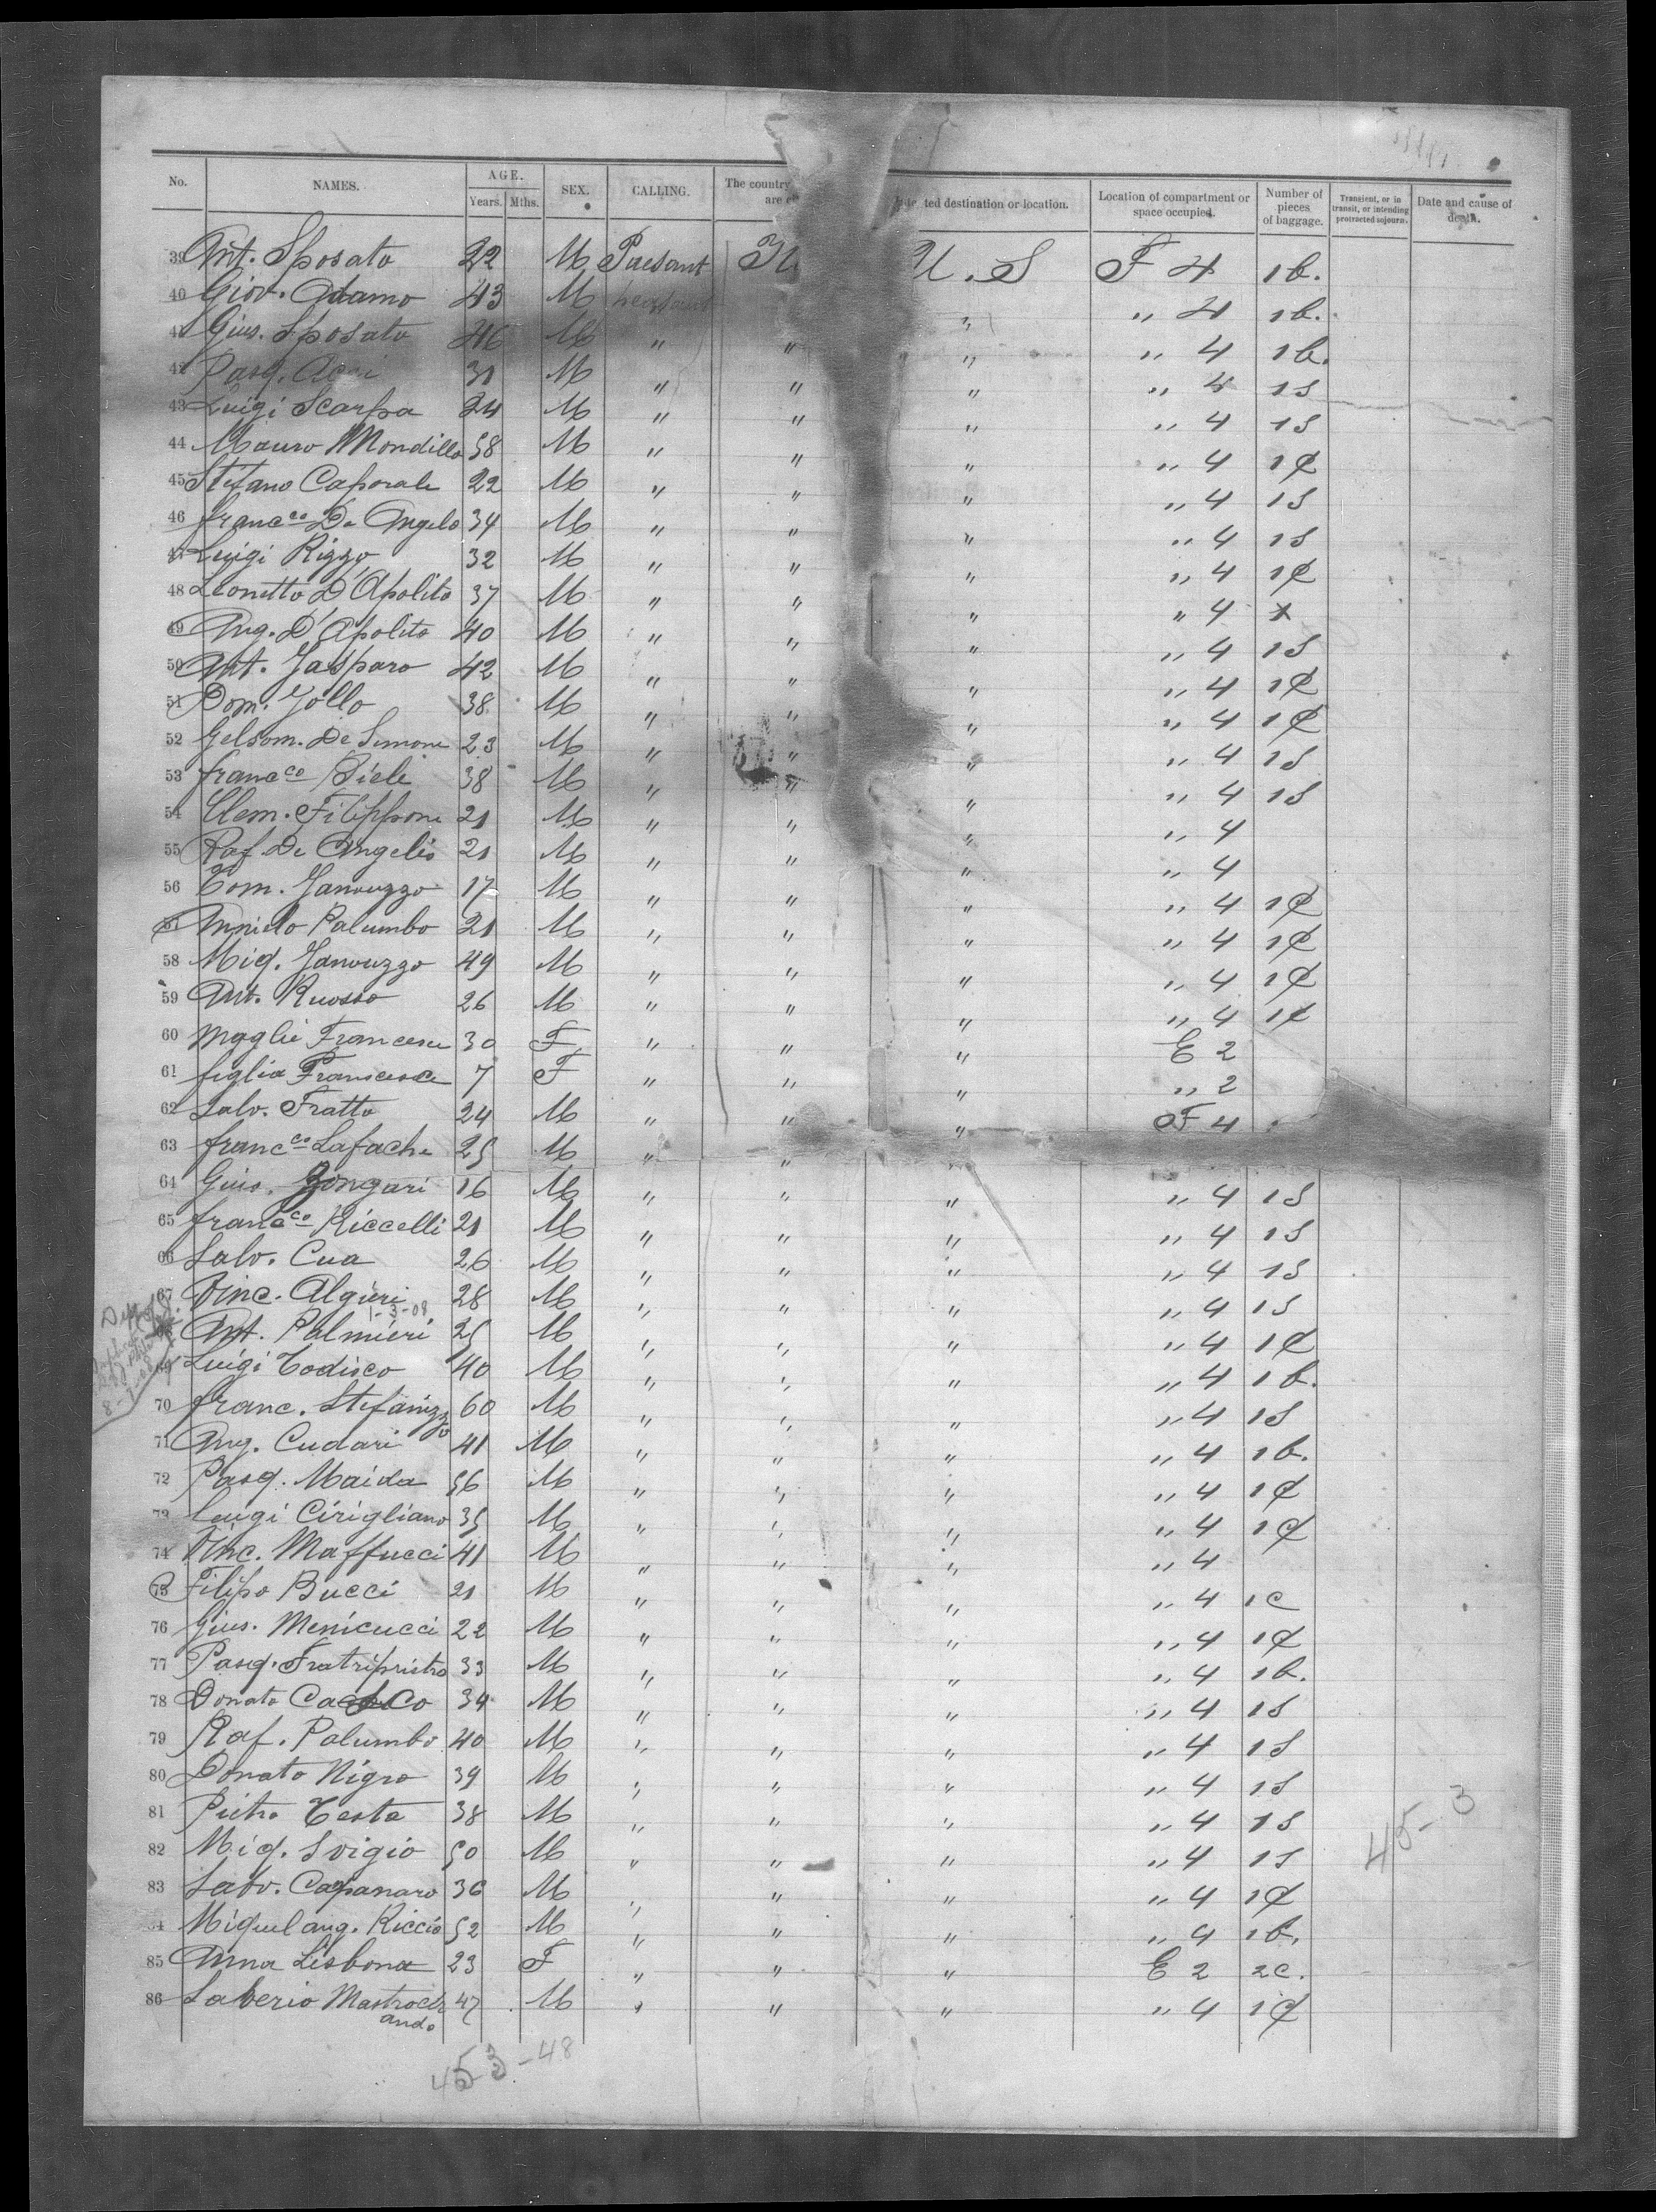 No. NAMES. AGE. SEX. CALLING. The country are intended destination or location. Location of compartment or space occupied. Number of pieces of baggage. Transient, or in transit, or intending protracted sojourn. Date and cause of death.
Years. Mths.
39 Ant. Sposato 22 M Paesant U.S F 4 1b.
40 Giov. Adamo 43 M peasant " " 4 1b.
41 Gius. Sposato 46 M " " " " 4 1b.
42 Pasq. 31 M " " " " 4 1S
43 Luigi Scarpa 24 M " " " " 4 1S
44 Mauro Mondillo 58 M " " " " 4 1C
45 Stefano Caporale 22 M " " " " 4 1S
46 francco De Angelo 34 M " " " " 4 1S
47 Luigi Rizzo 32 M " " " " 4 1C
48 Leonetto D'Apolito 37 M " " " " 4 x
49 Ang. D'Apolito 40 M " " " " 4 1S
50 Ant. Gasparo 42 M " " " " 4 1C
51 Dom. Jollo 38 M " " " " 4 1C
52 Gelsom. De Simone 23 M " " " " 4 1S
53 francco Biele 38 M " " " " 4 1S
54 Clem. Filippone 21 M " " " " 4
55 Raf. De Angelis 21 M " " " " 4
56 Tom. Janouzzo 17 M " " " " 4 1C
57 Anniello Palumbo 21 M " " " " 4 1C
58 Miq. Janouzzo 49 M " " " " 4 1C
59 Ant. Ruosso 26 M " " " " 4 1C
60 Moglie Francesca 30 F " " " E 2
61 figlia Francesca 7 F " " " " 2
62 Salv. Fratto 24 M " " " F 4
63 francco Lafache 25 M " " "
64 Gius. Zongari 16 M " " " " 4 1S
65 francco Riccelli 21 M " " " " 4 1S
66 Salv. Cua 26 M " " " " 4 1S
67 Vinc. Algieri 28 M " " " " 4 1S
1-3-08
68 Ant. Palmieri 25 M " " " " 4 1C
69 Luigi Todisco 40 M " " " " 4 1b.
70 franc. Stefanizzo 60 M " " " " 4 1S
71 Ang. Cudari 41 M " " " " 4 1b.
72 Pasq. Maida 56 M " " " " 4 1C
73 Luigi Cirigliano 35 M " " " " 4 1C
74 Vinc. Maffucci 41 M " " " " 4
75 Filipo Bucci 21 M " " " " 4 1C
76 Gius. Menicucci 22 M " " " " 4 1C
77 Pasq. Fratripietro 33 M " " " " 4 1b.
78 Donato 34 M " " " " 4 1S
79 Raf. Palumbo 40 M " " " " 4 1S
80 Donato Nigro 39 M " " " " 4 1S
81 Pietro Testa 38 M " " " " 4 1S
82 Miq. Svigio 50 M " " " " 4 1S
83 Salv. Capanaro 36 M " " " " 4 1C
84 Miquel ang. Riccio 52 M " " " " 4 1b.
85 Anna Lisbona 23 F " " " E 2 2C.
86 Saverio Mastrocolando 47 M " " " " 4 1C
45-3
453-48